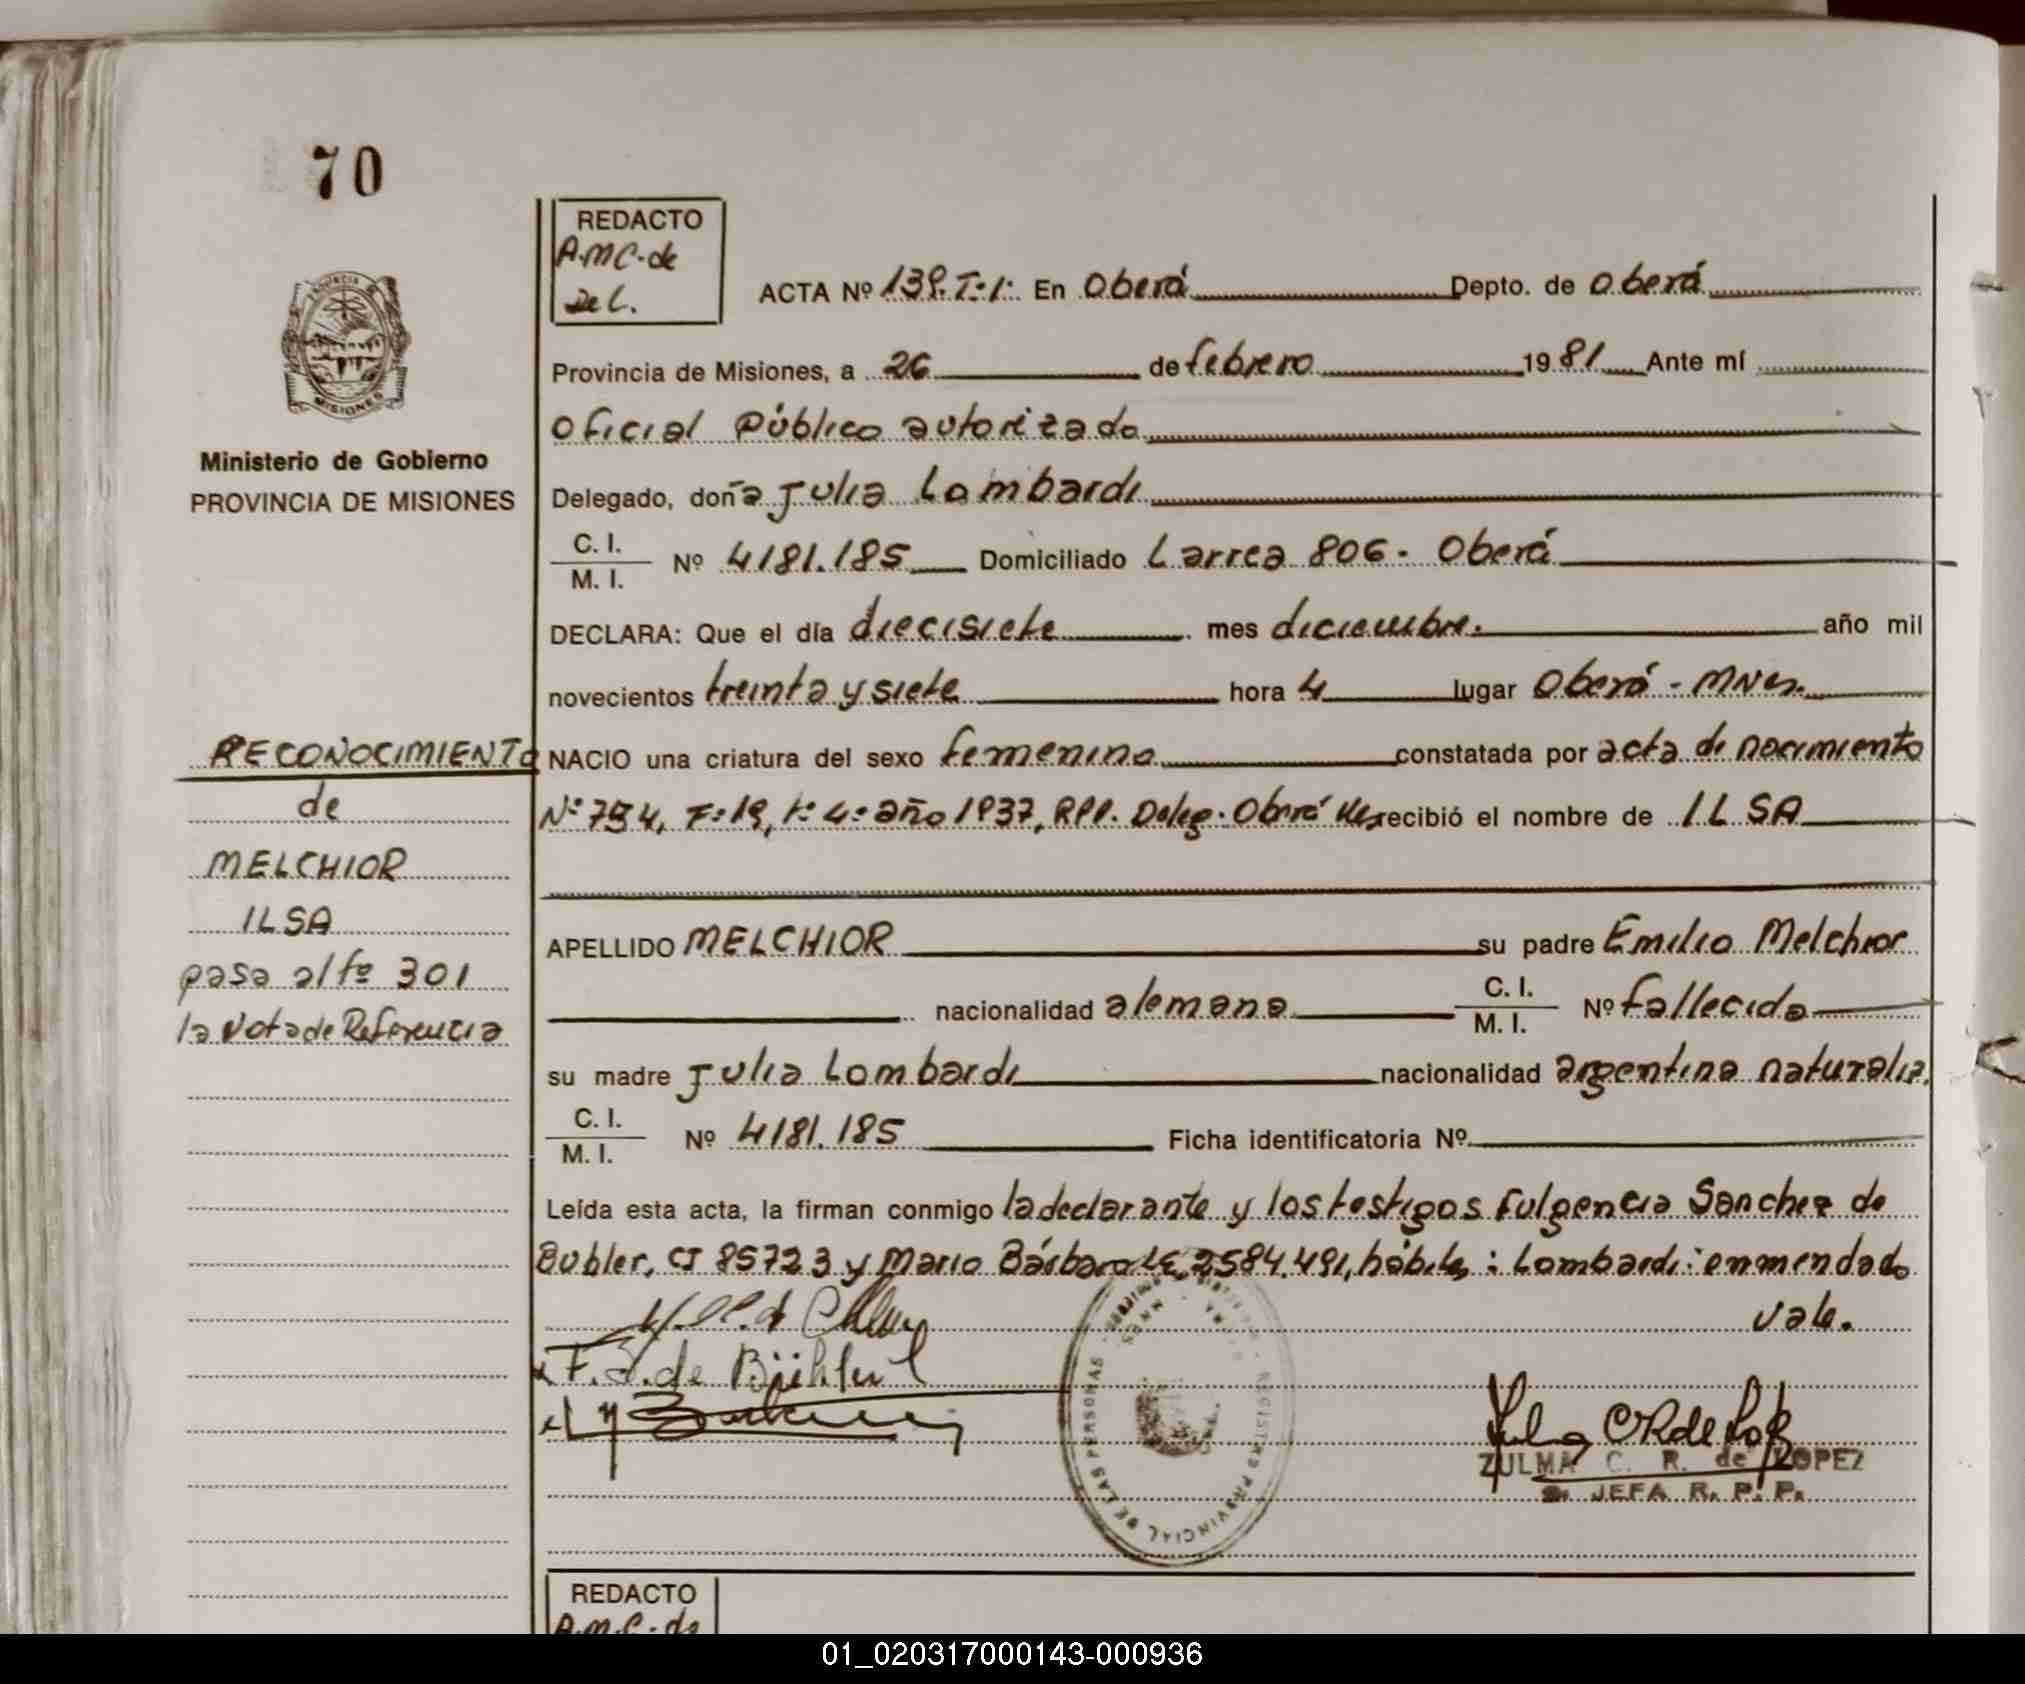 70
REDACTO
A.M.C. de
De L.
ACTA Nº 139. T:1: En Oberá Depto. de Oberá
Provincia de Misiones, a 26 de febrero 1981 Ante mí
Oficial Público autorizado
Ministerio de Gobierno
PROVINCIA DE MISIONES
Delegado, doña Julia Lombardi
C. I.
M. I.
Nº 4181.185 Domiciliado Larrea 806. Oberá
DECLARA: Que el día diecisiete mes diciembre. año mil
novecientos treinta y siete hora 4 lugar Oberá - MNes.
RECONOCIMIENTO
de
MELCHIOR
ILSA
pasa al fº 301
la Nota de Referencia
NACIO una criatura del sexo femenino constatada por acta de nacimiento
Nº 794, F:19, t: 4: año 1937, RPP. Deleg. Oberá recibió el nombre de ILSA
APELLIDO MELCHIOR su padre Emilio Melchior
nacionalidad alemana C. I.
M. I.
Nº fallecido
su madre Julia Lombardi nacionalidad argentina naturaliz.
C. I.
M. I.
Nº 4181.185 Ficha identificatoria Nº
Leída esta acta, la firman conmigo la declarante y los testigos Fulgencia Sanchez de
Bubler, CI 85723 y Mario Bárbaro LE 2584.491, hábiles : Lombardi: enmendado
vale.
F. S. de Bühler
REGISTRO PROVINCIAL DE LAS PERSONAS
ZULMA C. R. de LOPEZ
JEFA R. P. P.
REDACTO
A.M.C. de
01_020317000143-000936